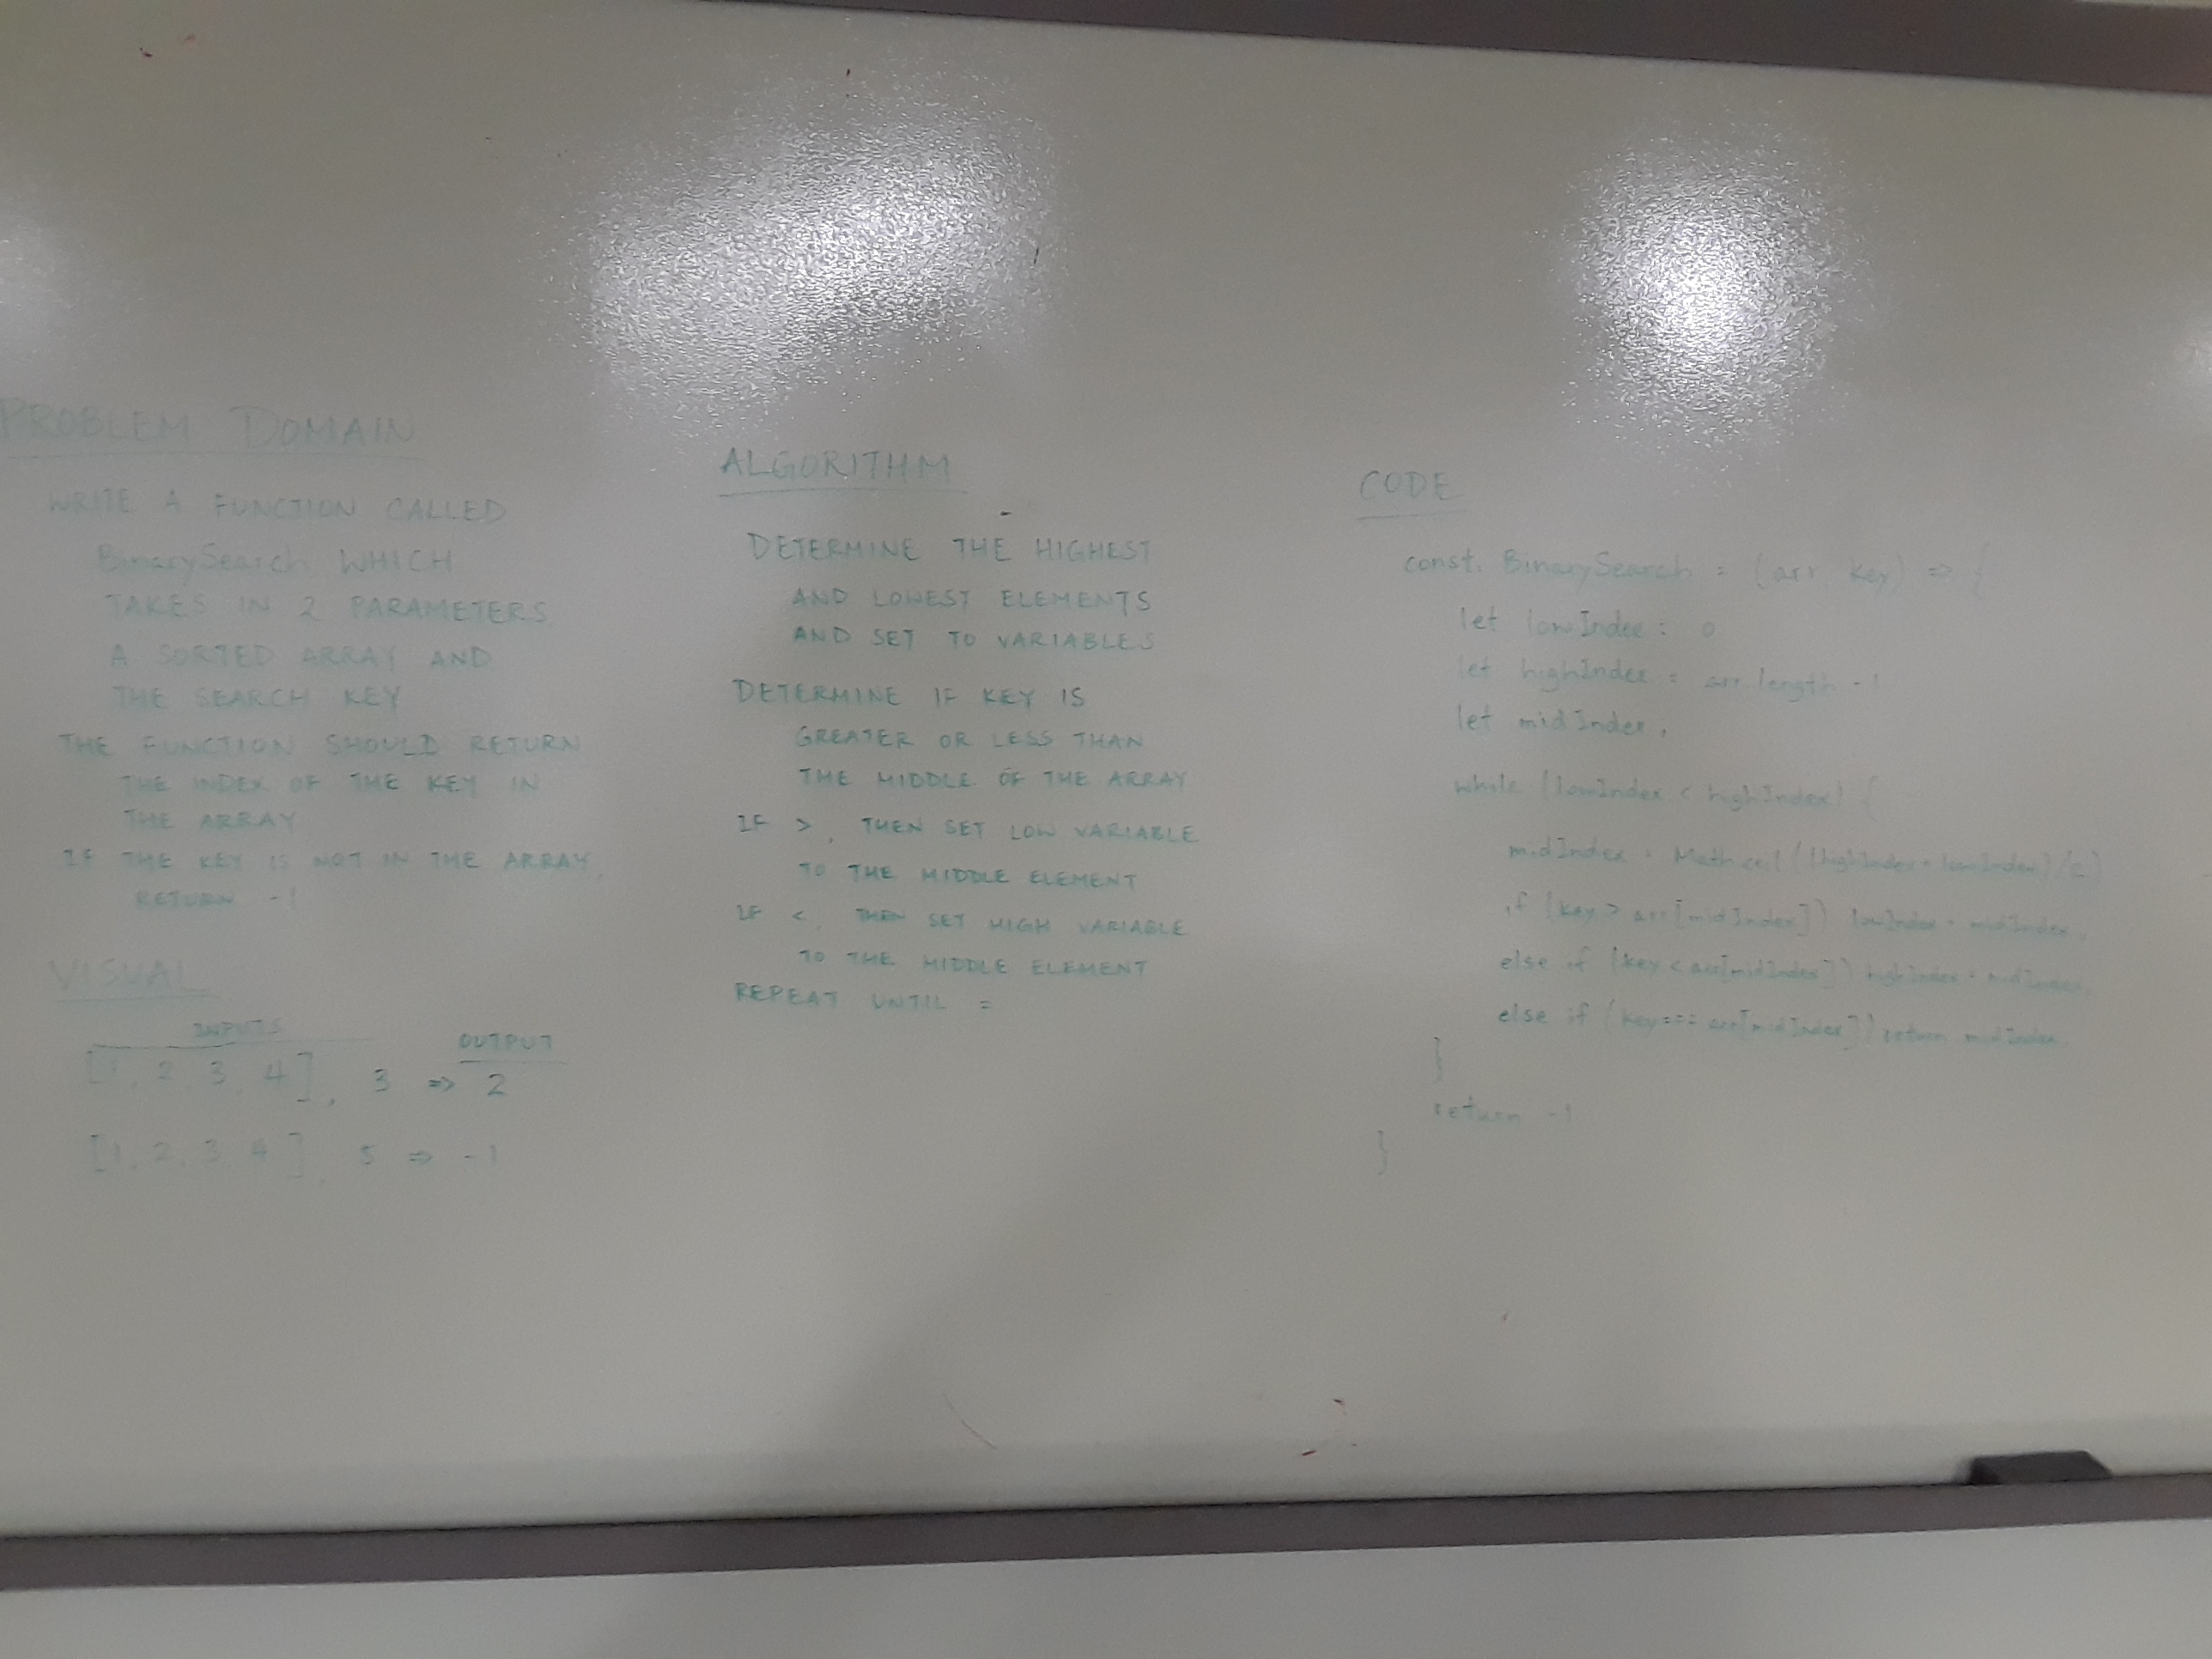 PROBLEM DOMAIN
WRITE A FUNCTION CALLED
BinarySearch WHICH
TAKES IN 2 PARAMETERS
A SORTED ARRAY AND
THE SEARCH KEY
THE FUNCTION SHOULD RETURN
THE INDEX OF THE KEY IN
THE ARRAY
IF THE KEY IS NOT IN THE ARRAY,
RETURN -1
VISUAL
INPUTS OUTPUT
[1, 2, 3, 4], 3 => 2
[1, 2, 3, 4], 5 => -1
ALGORITHM
DETERMINE THE HIGHEST
AND LOWEST ELEMENTS
AND SET TO VARIABLES
DETERMINE IF KEY IS
GREATER OR LESS THAN
THE MIDDLE OF THE ARRAY
IF >, THEN SET LOW VARIABLE
TO THE MIDDLE ELEMENT
IF <, THEN SET HIGH VARIABLE
TO THE MIDDLE ELEMENT
REPEAT UNTIL =
CODE
const BinarySearch = (arr, key) => {
let lowIndex = 0
let highIndex = arr.length -1
let midIndex;
while (lowIndex < highIndex) {
midIndex = Math.ceil((highIndex + lowIndex)/2)
if (key > arr[midIndex]) lowIndex = midIndex;
else if (key < arr[midIndex]) highIndex = midIndex;
else if (key === arr[midIndex]) return midIndex;
}
return -1
}